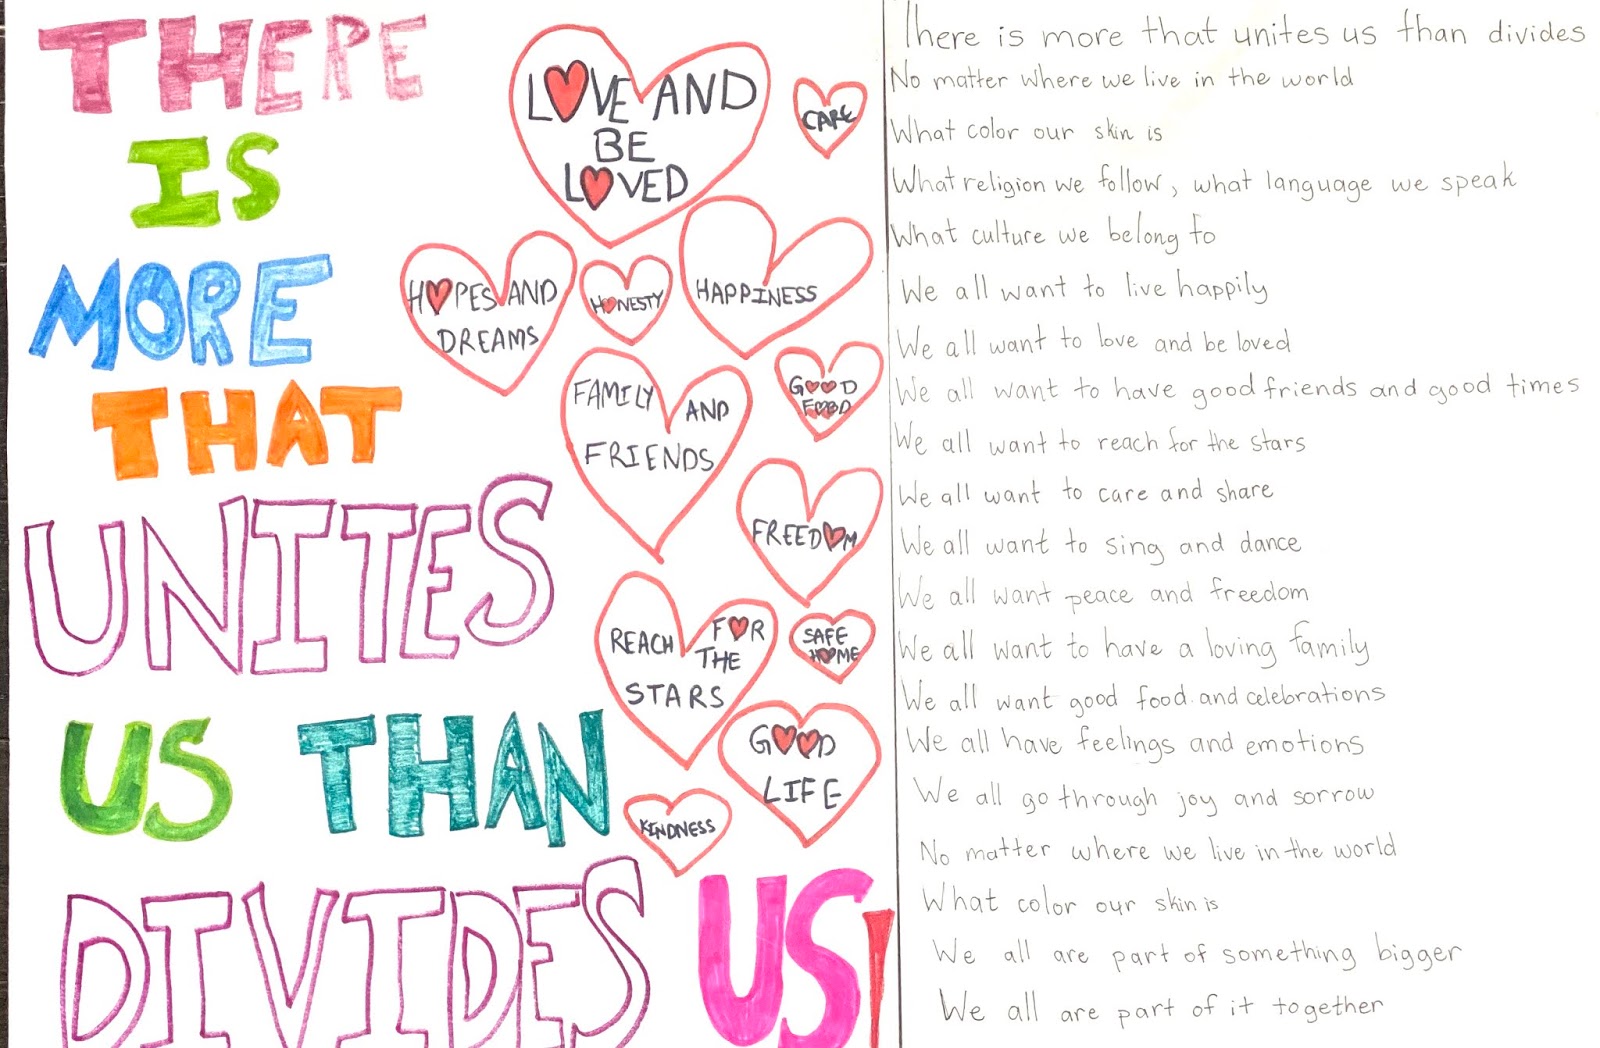 THERE
IS
MORE
THAT
UNITES
US THAN
DIVIDES US!
LOVE AND
BE
LOVED
CARE
HOPES AND
DREAMS
HONESTY
HAPPINESS
FAMILY AND
FRIENDS
GOOD
FOOD
FREEDOM
REACH FOR
THE
STARS
SAFE
HOME
GOOD
LIFE
KINDNESS
There is more that unites us than divides
No matter where we live in the world
What color our skin is
What religion we follow, what language we speak
What culture we belong to
We all want to live happily
We all want to love and be loved
We all want to have good friends and good times
We all want to reach for the stars
We all want to care and share
We all want to sing and dance
We all want peace and freedom
We all want to have a loving family
We all want good food and celebrations
We all have feelings and emotions
We all go through joy and sorrow
No matter where we live in the world
What color our skin is
We all are part of something bigger
We all are part of it together